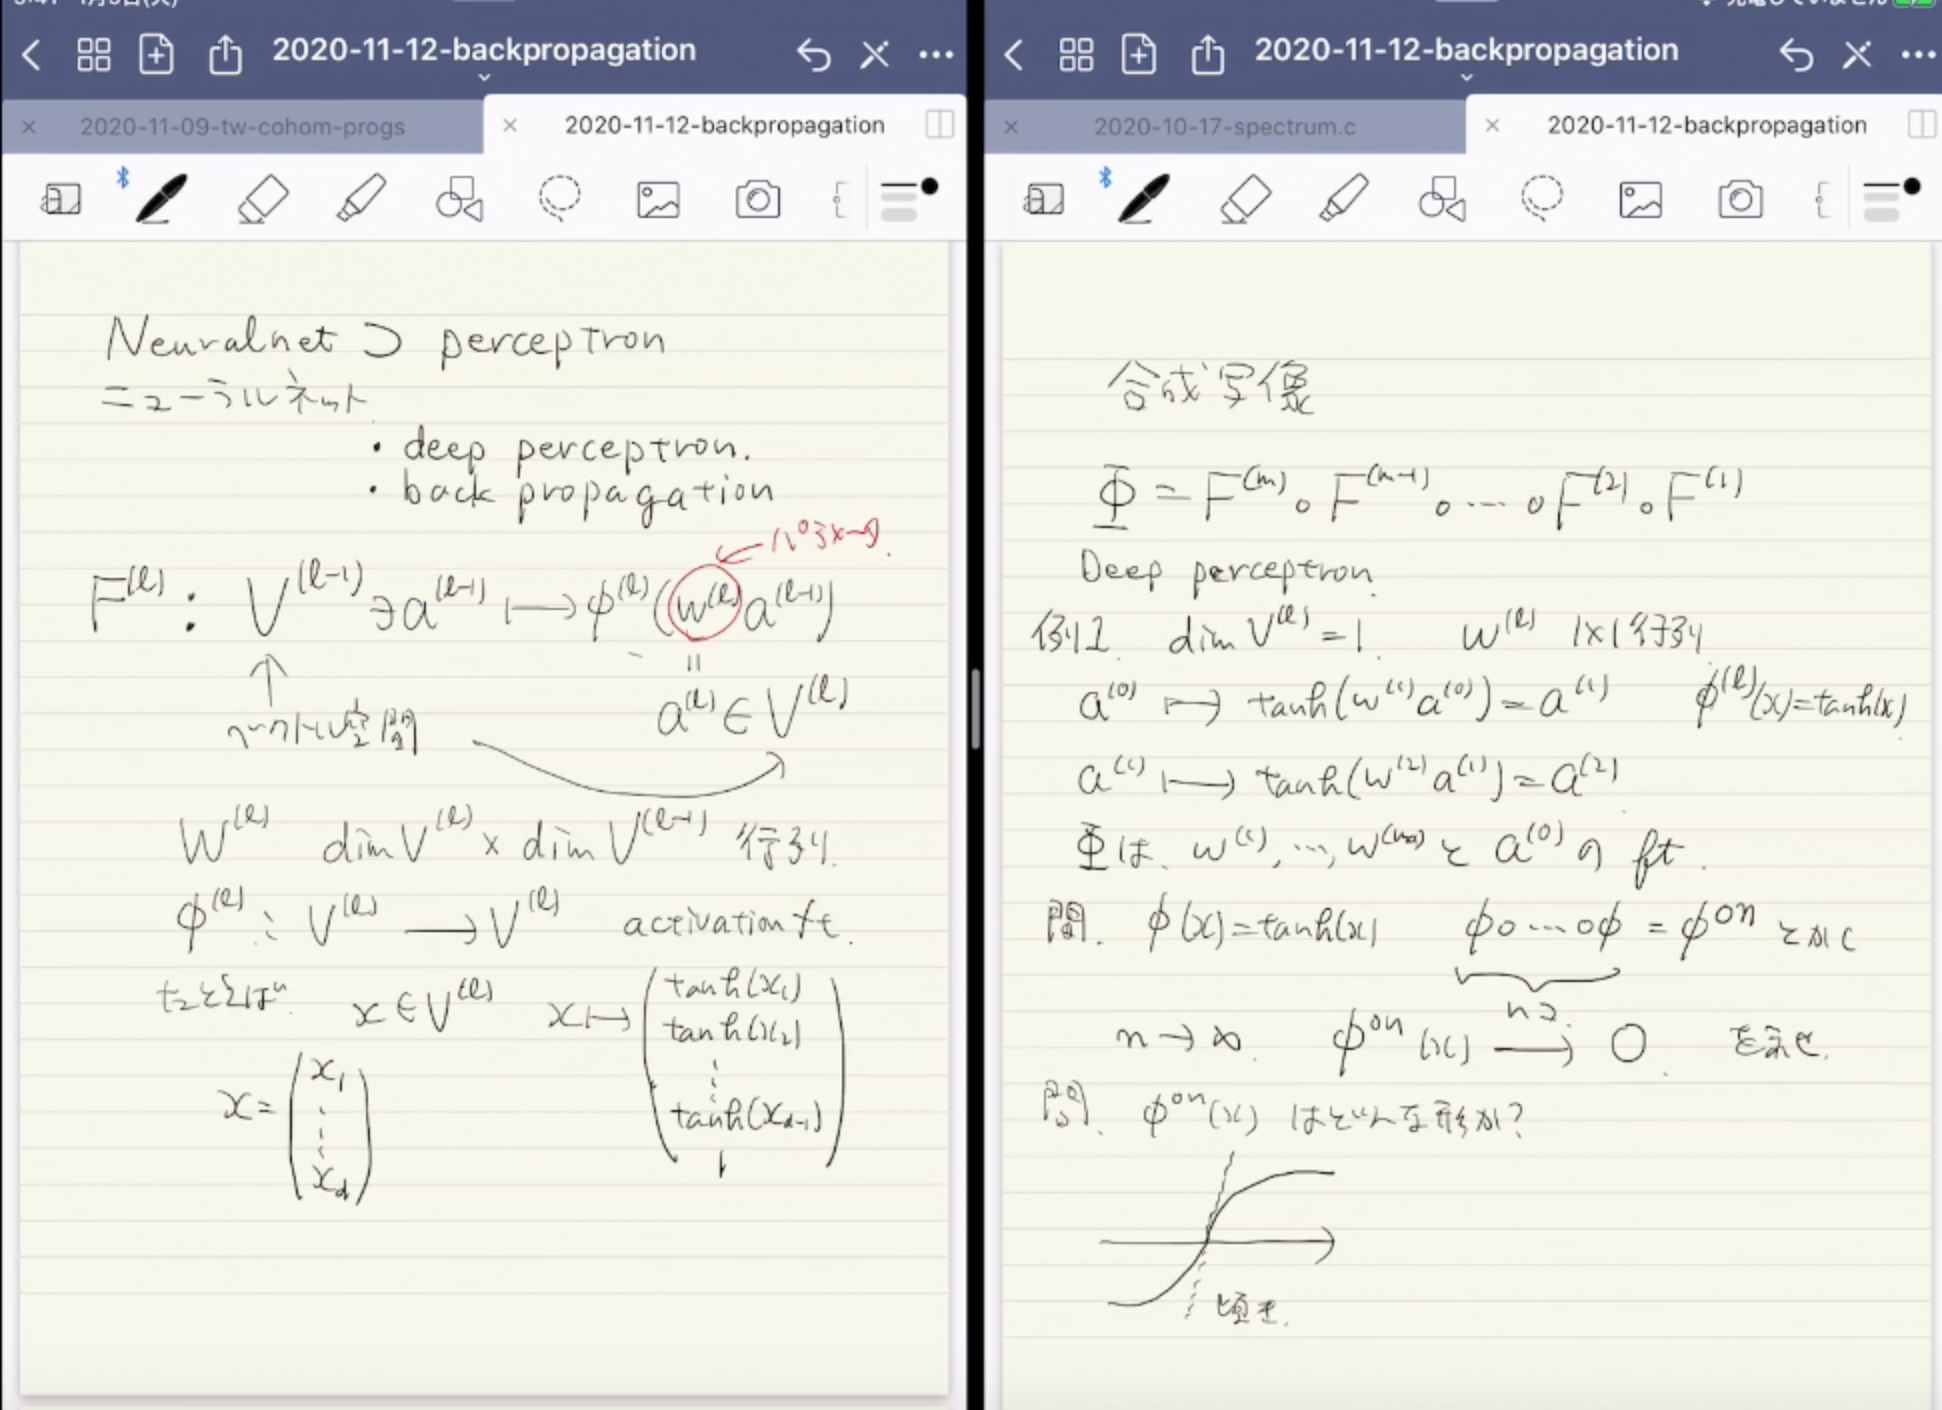 2020-11-12-backpropagation
2020-11-09-tw-cohom-progs
2020-11-12-backpropagation
Neuralnet ⊃ perceptron
ニューラルネット
・deep perceptron.
・back propagation
← パラメータ.
F^(l) : V^(l-1) ∋ a^(l-1) ↦ φ^(l)(w^(l) a^(l-1))
↑ =
ベクトル空間 a^(l) ∈ V^(l)
W^(l) dim V^(l) × dim V^(l-1) 行列.
φ^(l) : V^(l) → V^(l) activation ft.
たとえば x ∈ V^(l) x ↦ ( tanh(x₁)
tanh(x₂)
⋮
tanh(x_{d-1})
1 )
x = ( x₁
⋮
x_d )
2020-11-12-backpropagation
2020-10-17-spectrum.c
2020-11-12-backpropagation
合成写像
Φ = F^(m) ∘ F^(m-1) ∘ ⋯ ∘ F^(2) ∘ F^(1)
Deep perceptron.
例1. dim V^(l) = 1. W^(l) 1×1行列
a^(0) ↦ tanh(w^(1) a^(0)) = a^(1) φ^(l)(x) = tanh(x)
a^(1) ↦ tanh(w^(2) a^(1)) = a^(2)
Φは、w^(1), ⋯, w^(m) と a^(0) の ft.
問. φ(x) = tanh(x) φ∘⋯∘φ = φ^{∘n} とかく
nコ.
n → ∞. φ^{∘n}(x) → 0. を示せ.
問. φ^{∘n}(x) はどんな形か?
傾き.